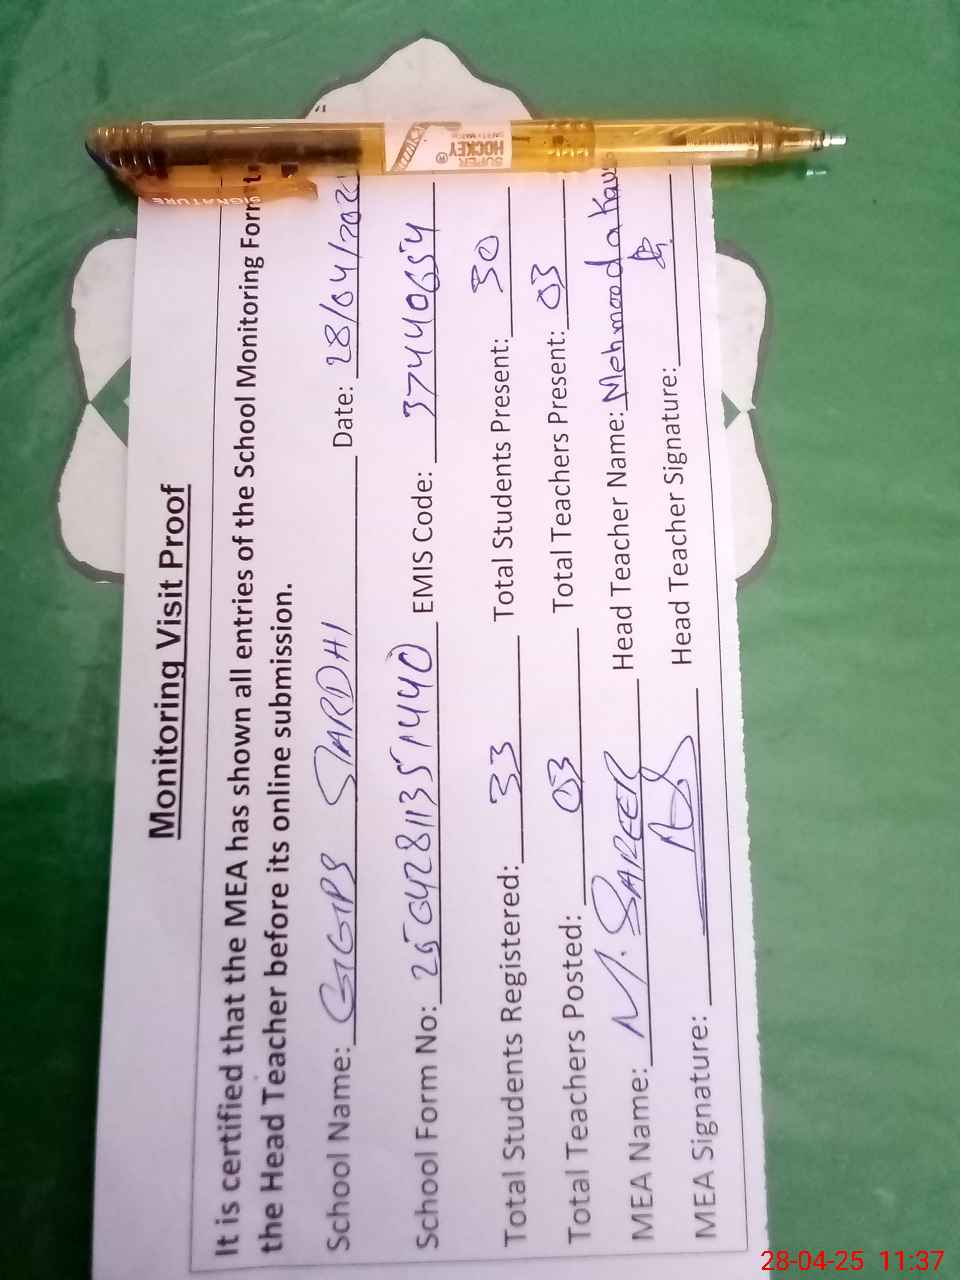 Monitoring Visit Proof
It is certified that the MEA has shown all entries of the School Monitoring Form to
the Head Teacher before its online submission.
School Name: GGPS SARDHI Date: 28/04/202
School Form No: 25042811351440 EMIS Code: 37440654
Total Students Registered: 33 Total Students Present: 30
Total Teachers Posted: 03 Total Teachers Present: 03
MEA Name: M. SAREER Head Teacher Name: Mehmooda Kaus
MEA Signature: Head Teacher Signature:
SIGNATURE
SUPER
HOCKEY®
28-04-25 11:37